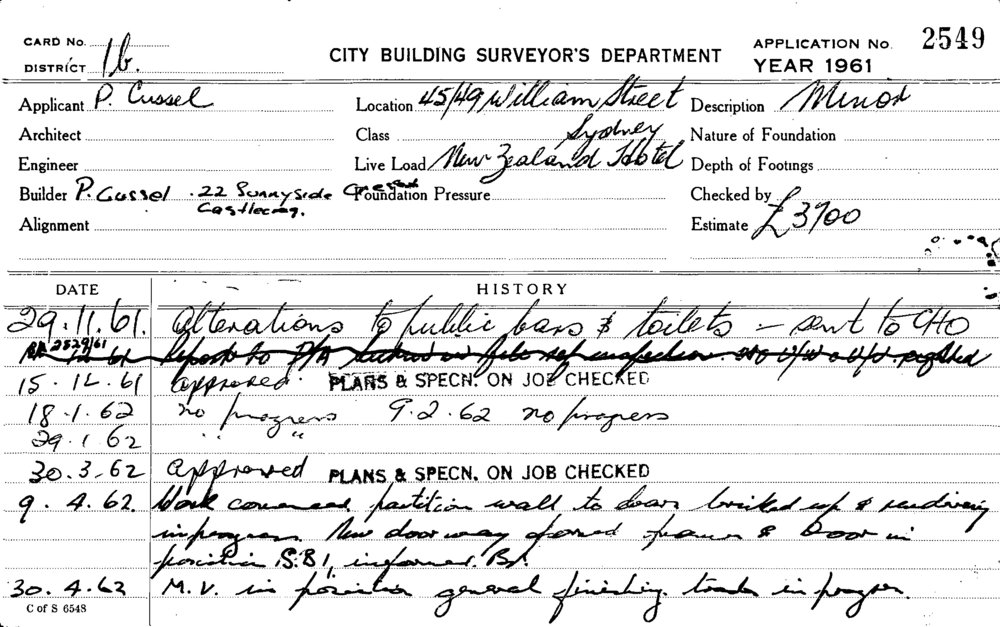 CARD No.
DISTRICT 1b.
CITY BUILDING SURVEYOR'S DEPARTMENT
APPLICATION No. 2549
YEAR 1961
Applicant P. Cussel Location 45/49 William Street Description Minor
Architect Class Sydney Nature of Foundation
Engineer Live Load New Zealand Hotel Depth of Footings
Builder P. Cussel . 22 Sunnyside Foundation Pressure Checked by
Castlecrag.
Alignment Estimate £3700
DATE HISTORY
29.11.61. Alterations to public bars & toilets – sent to CHO
2529/61
15.12.61 approved. PLANS & SPECN. ON JOB CHECKED
18.1.62 no progress 9.2.62 no progress
29.1.62 " "
30.3.62 approved PLANS & SPECN. ON JOB CHECKED
9.4.62. Work commenced partition wall to bars bricked up & rendering
in progress. New doorway formed frame & Door in
position informed
30.4.62 M.V. in position general finishing trades in progress.
C of S 6548